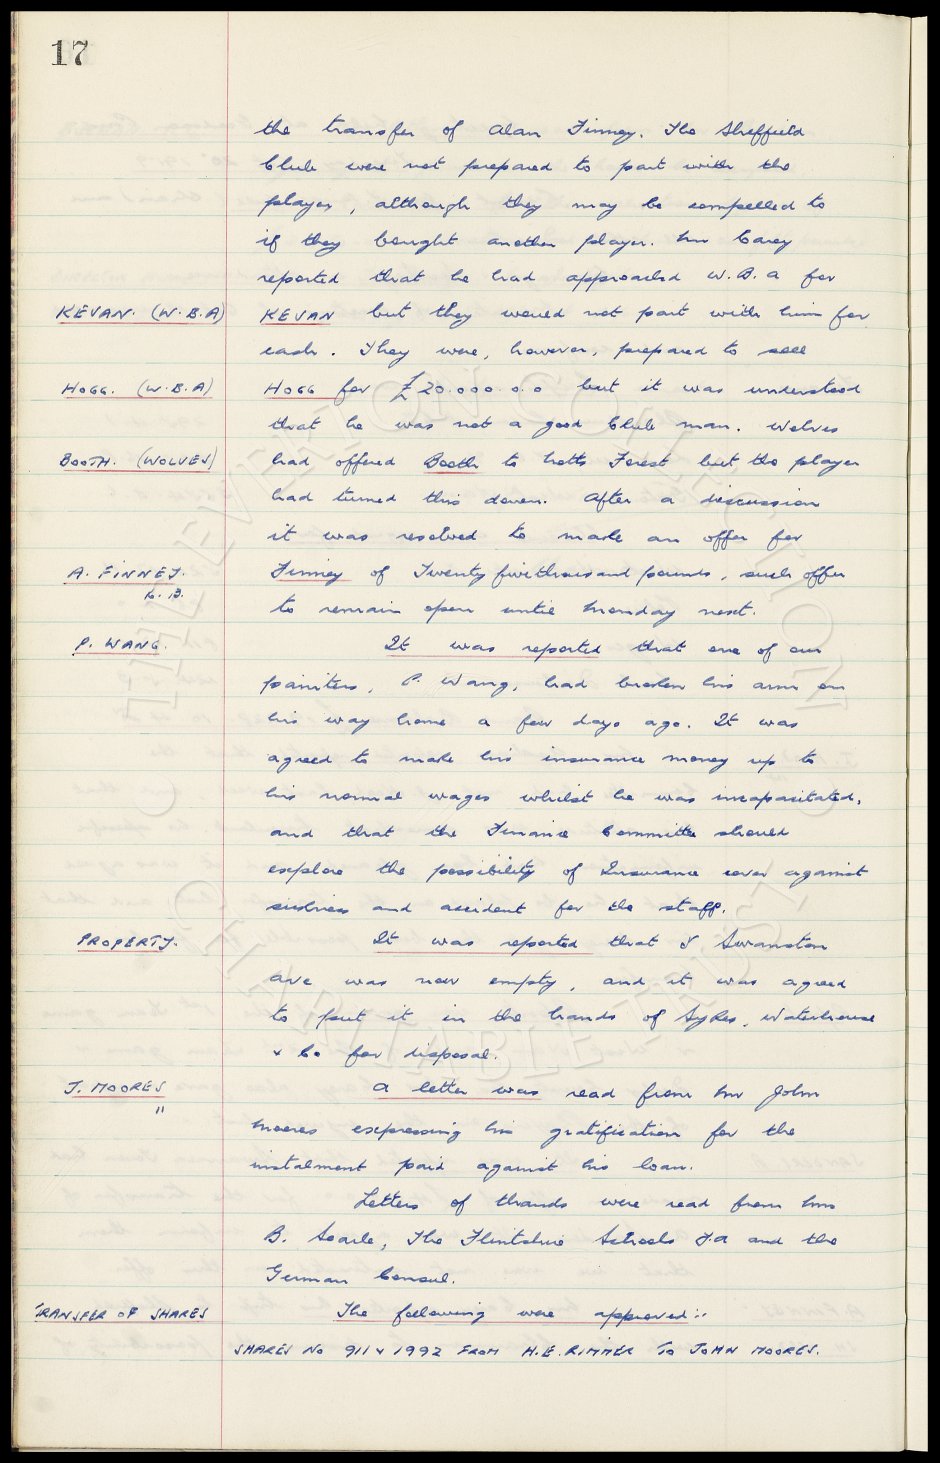 17
the transfer of Alan Finney. The Sheffield
Club were not prepared to part with the
player, although they may be compelled to
if they bought another player. Mr Carey
reported that he had approached W.B.A for
KEVAN. (W.B.A) KEVAN but they would not part with him for
cash. They were, however, prepared to sell
HOGG. (W.B.A) HOGG for £20.000.0.0 but it was understood
that he was not a good Club man. Wolves
BOOTH. (WOLVES) had offered Booth to Notts Forest but the player
had turned this down. After a discussion
it was resolved to make an offer for
A. FINNEY. Finney of Twenty five thousand pounds, such offer
to remain open until Monday next.
P. WANG. It was reported that one of our
painters, P. Wang, had broken his arm on
his way home a few days ago. It was
agreed to make his insurance money up to
his normal wages whilst he was incapacitated,
and that the Finance Committee should
explore the possibility of Insurance cover against
sickness and accident for the staff.
PROPERTY. It was reported that 8 Swanston
Ave was now empty, and it was agreed
to put it in the hands of Sykes, Waterhouse
& Co for disposal.
J. MOORES A letter was read from Mr John
" Moores expressing his gratification for the
instalment paid against his loan.
Letters of thanks were read from Mrs
B. Searle, The Flintshire Schools F.A and the
German Consul.
TRANSFER OF SHARES The following were approved:-
SHARES No 911 & 1992 FROM H.E. RIMMER TO JOHN MOORES.
THE EVERTON COLLECTION
CHARITABLE TRUST